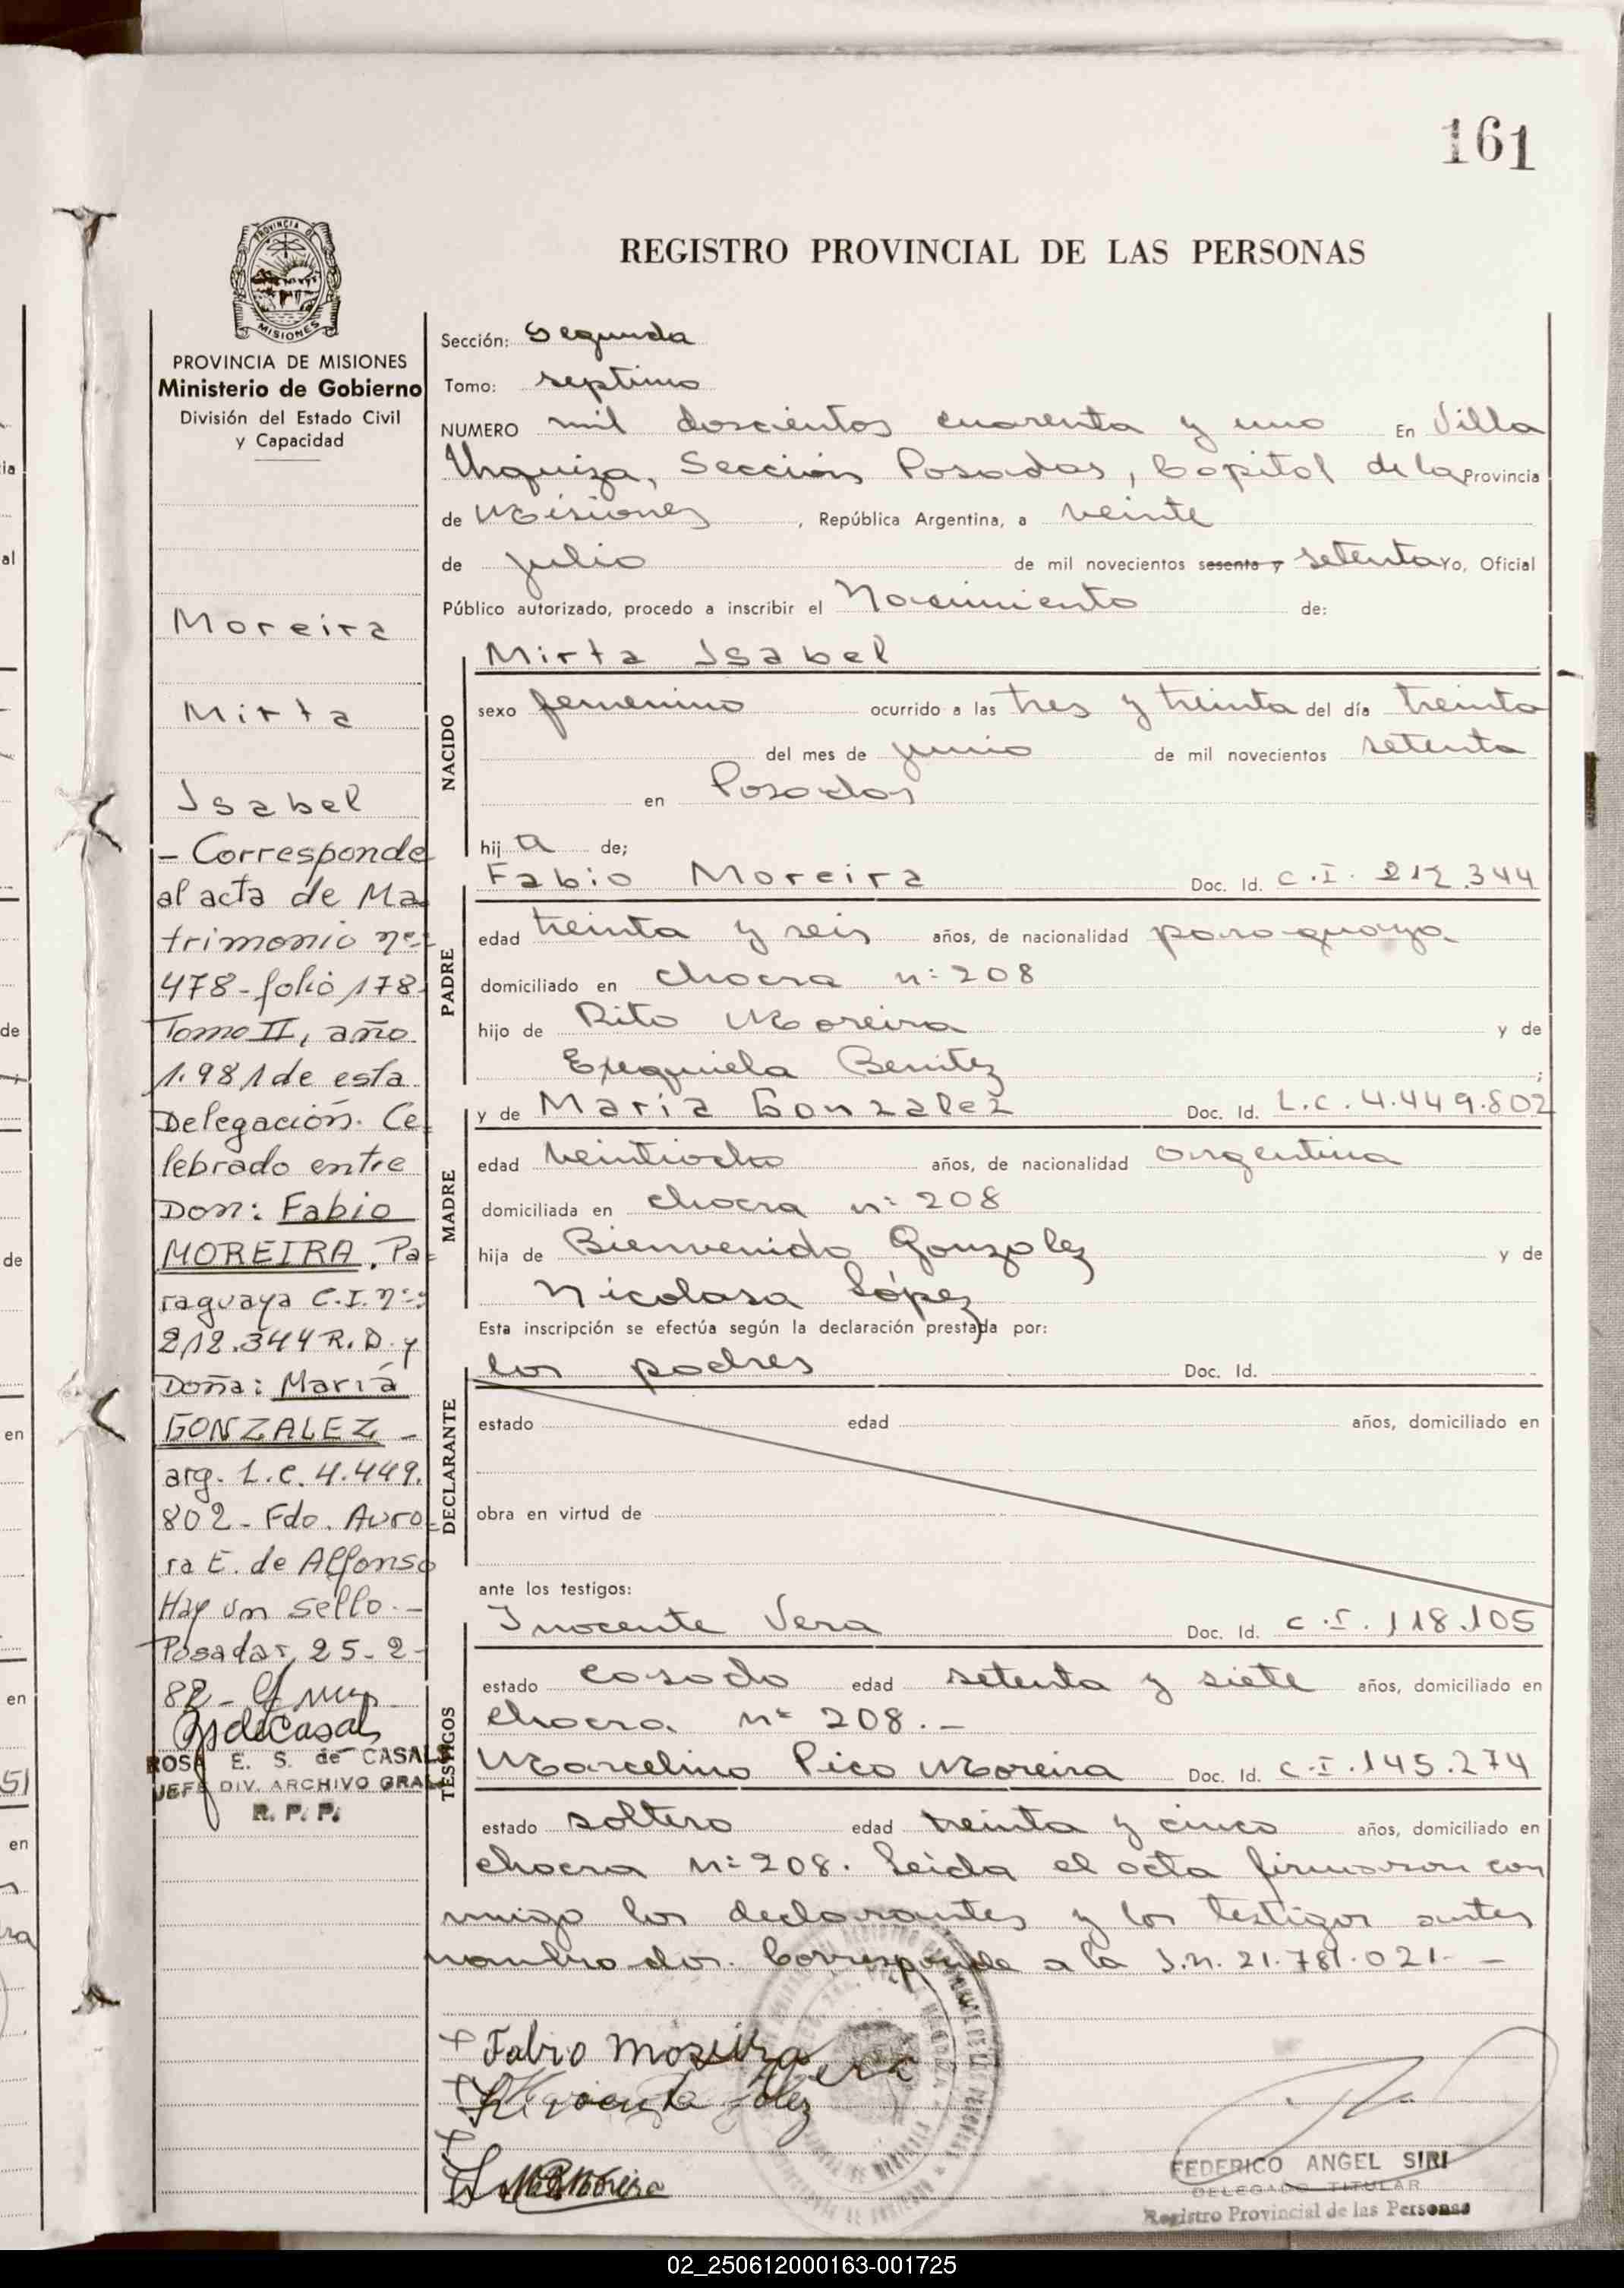 161
REGISTRO PROVINCIAL DE LAS PERSONAS
PROVINCIA DE MISIONES
Ministerio de Gobierno
División del Estado Civil
y Capacidad
Moreira
Mirta
Isabel
- Corresponde
al acta de Ma
trimonio nº
478 - folio 178
Tomo II, año
1.981 de esta
Delegación. Ce
lebrado entre
Don: Fabio
MOREIRA, Pa-
raguaya C.I. nº
212.344 R.D. y
Doña: María
GONZALEZ -
arg. L.C. 4.449.
802 - Fdo. Auro-
ra E. de Alfonso
Hay un sello. -
Posadas, 25-2-
82 -
ROSA E. S. de CASALS
JEFE DIV. ARCHIVO GRAL
R. P. P.
Sección: Segunda
Tomo: septimo
NUMERO mil doscientos cuarenta y uno En Villa
Urquiza, Sección Posadas, Capital de la Provincia
de Misiones, República Argentina, a veinte
de julio de mil novecientos sesenta y setenta Yo, Oficial
Público autorizado, procedo a inscribir el Nacimiento de:
NACIDO
Mirta Isabel
sexo femenino ocurrido a las tres y treinta del día treinta
del mes de junio de mil novecientos setenta
en Posadas
hij a de;
PADRE
Fabio Moreira Doc. Id. C.I. 212.344
edad treinta y seis años, de nacionalidad paraguaya
domiciliado en chacra nº 208
hijo de Rito Moreira y de
Exequiela Benitez ;
MADRE
y de María Gonzalez Doc. Id. L.C. 4.449.802
edad veintiocho años, de nacionalidad argentina
domiciliada en chacra nº 208
hija de Bienvenido Gonzalez y de
Nicolasa López
Esta inscripción se efectúa según la declaración prestada por:
DECLARANTE
los padres Doc. Id.
estado edad años, domiciliado en
obra en virtud de
ante los testigos:
TESTIGOS
Inocente Vera Doc. Id. C.I. 118.105
estado casado edad setenta y siete años, domiciliado en
chacra nº 208. -
Marcelino Pico Moreira Doc. Id. C.I. 145.274
estado soltero edad treinta y cinco años, domiciliado en
chacra nº 208. Leida el acta firmaron con
migo los declarantes y los testigos antes
nombrados. Corresponde a la I.N. 21.781.021 -
+ Fabio Moreira
FEDERICO ANGEL SIRI
DELEGADO TITULAR
Registro Provincial de las Personas
02_250612000163-001725